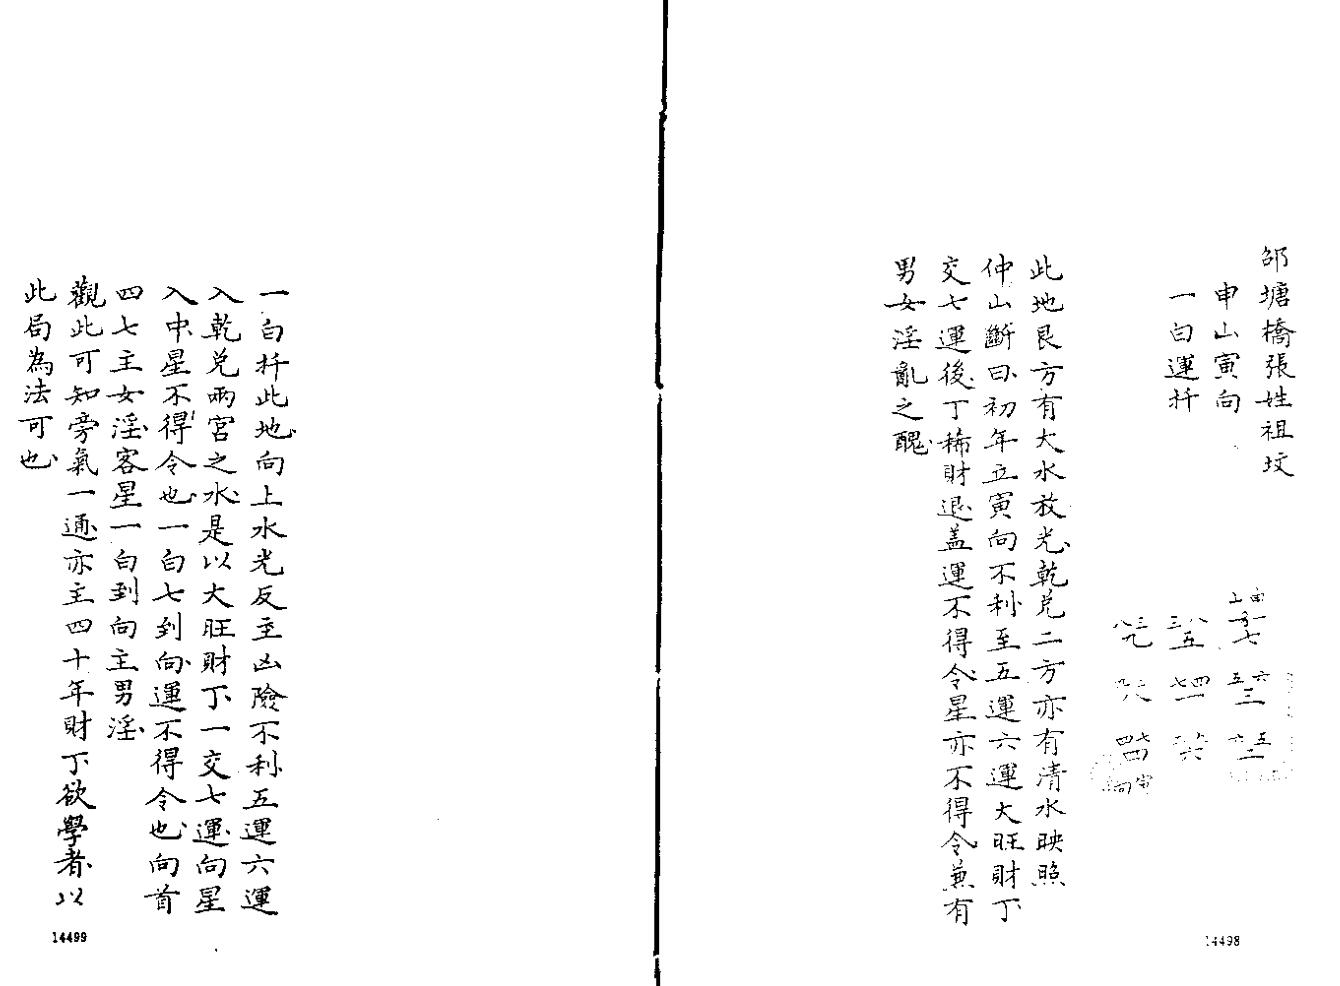 邵塘橋張姓祖坟
申山寅向
一白運扦
申山
七
五六
三
六五
二
三八
五
七四
一
八三
九
四七
四
寅向
此地艮方有大水放光乾兑二方亦有清水映照
仲山斷曰初年立寅向不利至五運六運大旺財丁
交七運後丁稀財退盖運不得令星亦不得令兼有
男女淫亂之醜
14498
一白扦此地向上水光反主凶險不利五運六運
入乾兑兩宮之水是以大旺財丁一交七運向星
入中星不得令也一白七到向運不得令也向首
四七主女淫客星一白到向主男淫
觀此可知旁氣一通亦主四十年財丁欲學者以
此局為法可也
14499